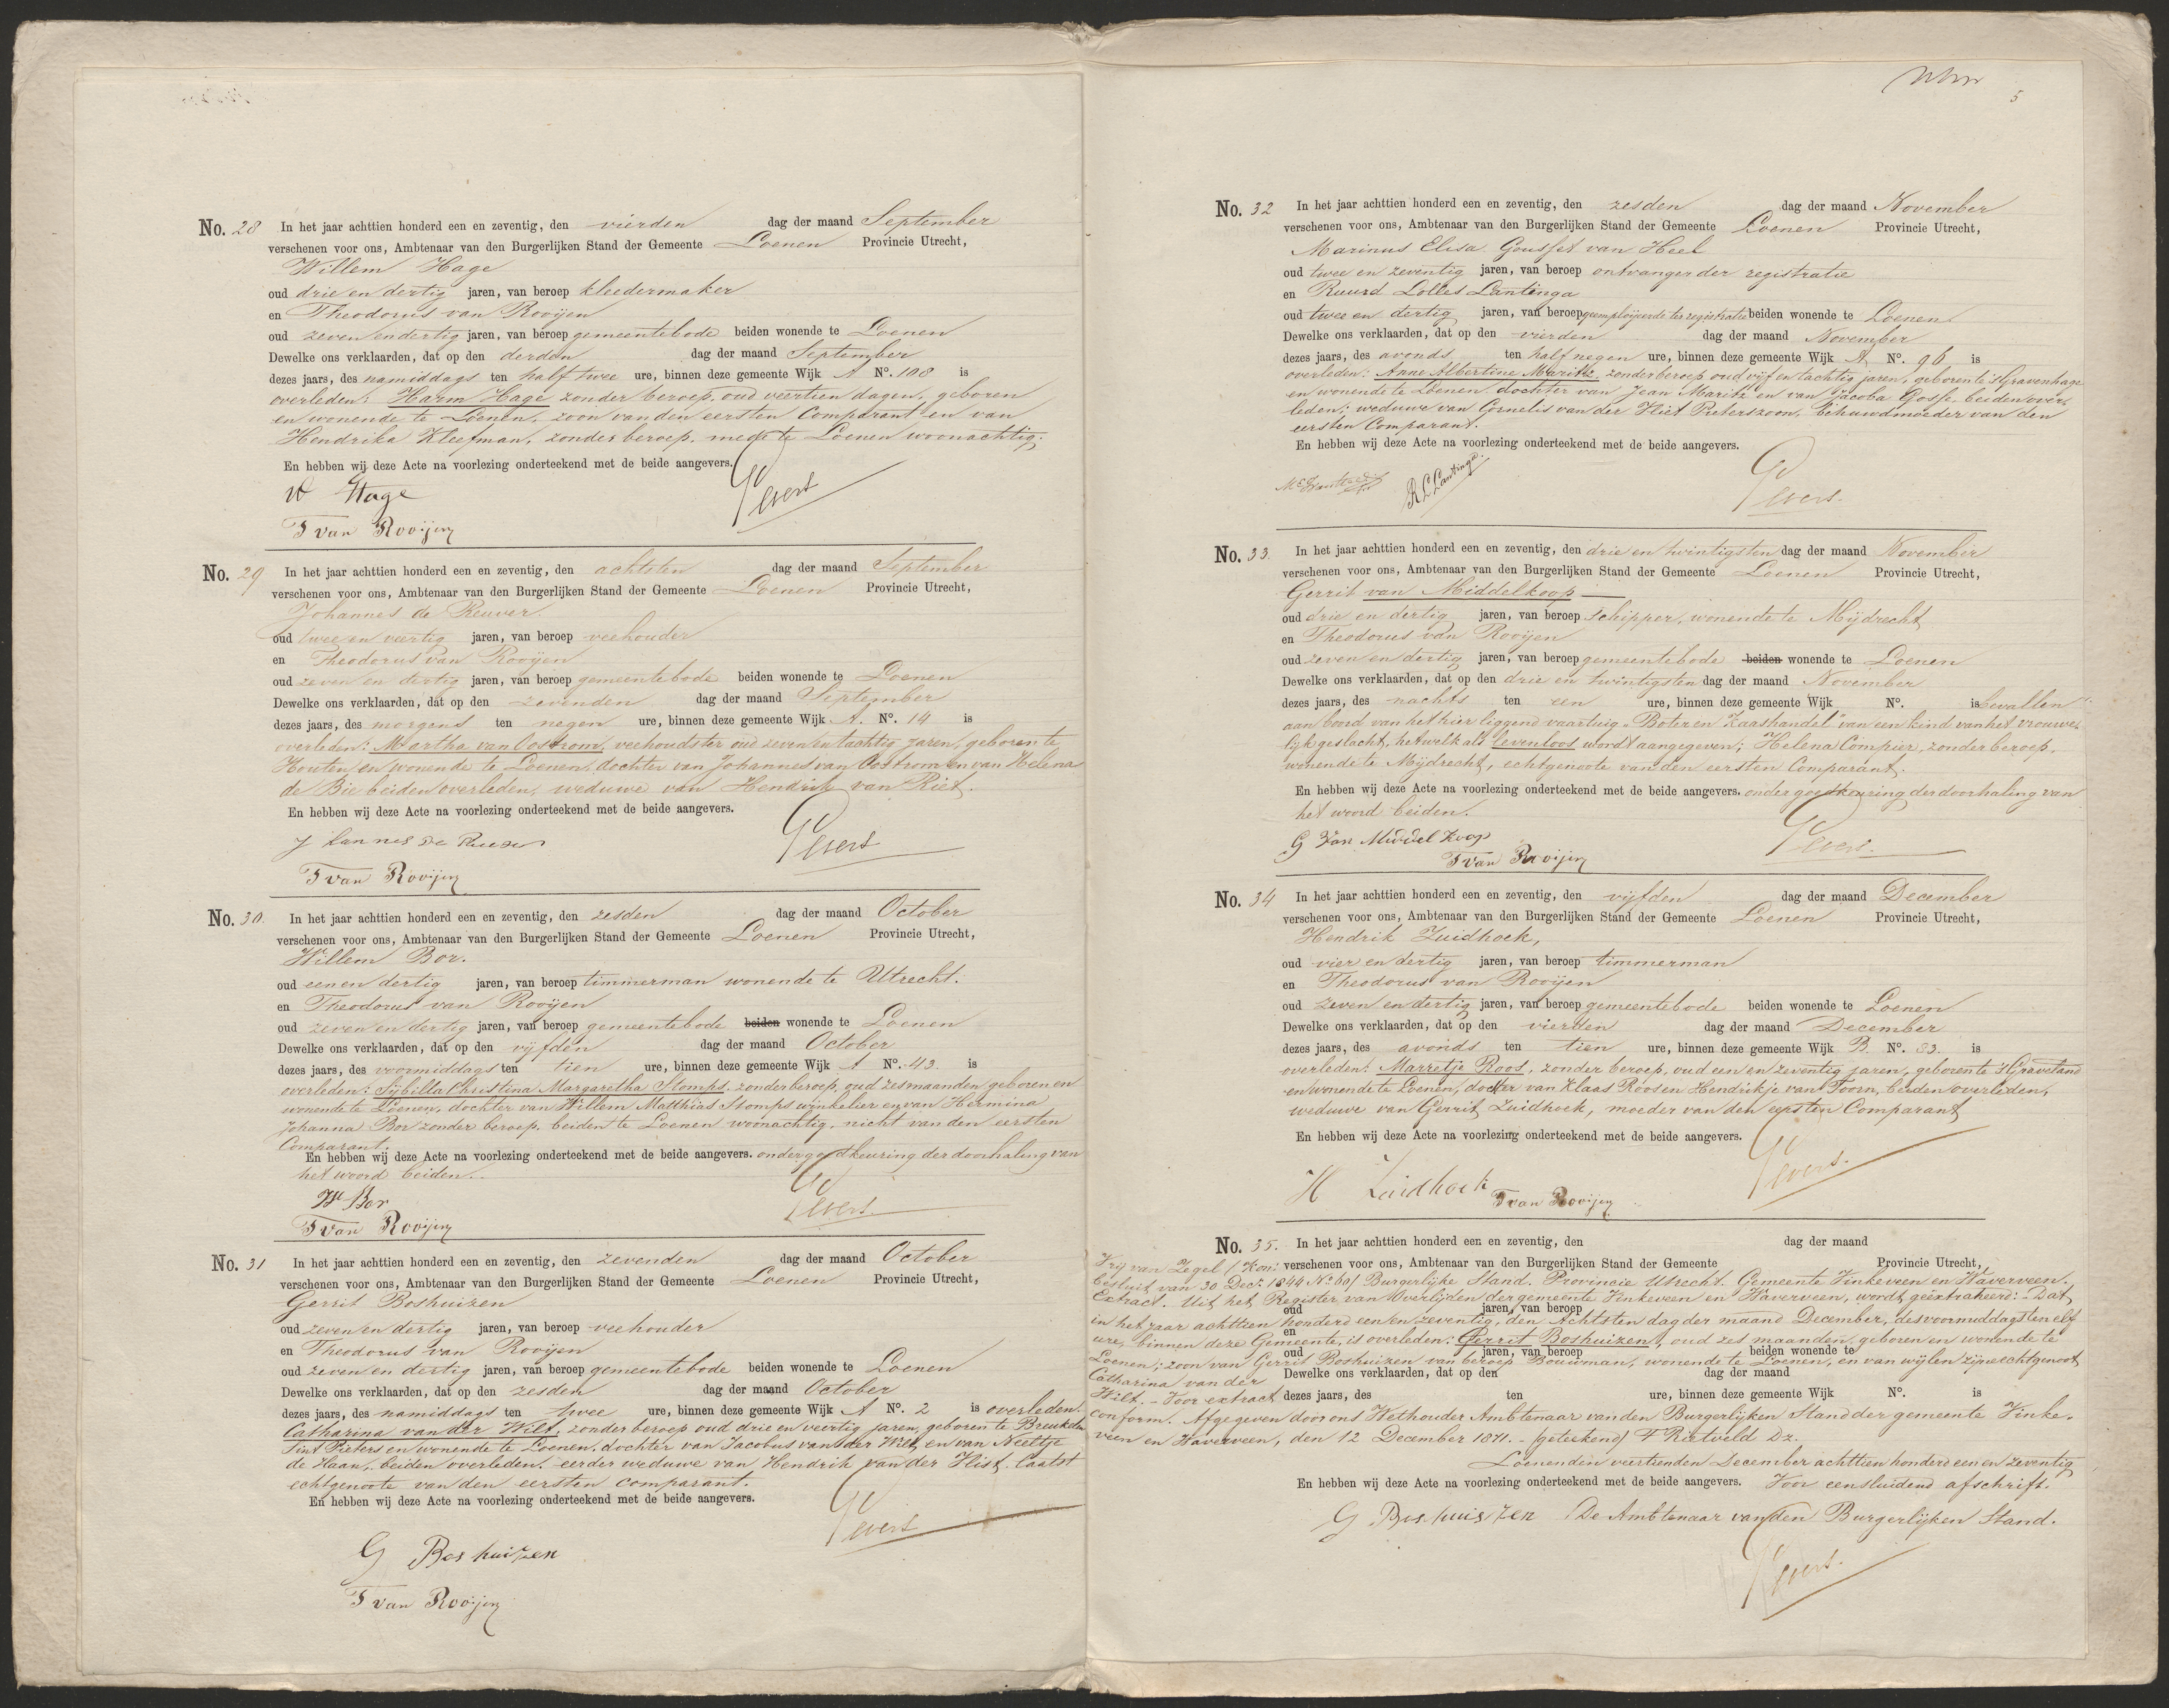 No. 28 In het jaar achttien honderd een en zeventig, den vierden dag der maand September
verschenen voor ons, Ambtenaar van den Burgerlijken Stand der Gemeente Loenen Provincie Utrecht,
Willem Hage
oud drie en dertig jaren, van beroep kleedermaker
en Theodorus van Rooijen
oud zeven en dertig jaren, van beroep gemeentebode beiden wonende te Loenen
Dewelke ons verklaarden, dat op den derden dag der maand September
dezes jaars, des namiddags ten half twee ure, binnen deze gemeente Wijk A No. 108 is
overleden: Harm Hage zonder beroep, oud veertien dagen, geboren
en wonende te Loenen, zoon van den eersten Comparant en van
Hendrika Kleefman, zonder beroep, mede te Loenen woonachtig.
En hebben wij deze Acte na voorlezing onderteekend met de beide aangevers.
W Hage
T van Rooijen
No. 29 In het jaar achttien honderd een en zeventig, den achtsten dag der maand September
verschenen voor ons, Ambtenaar van den Burgerlijken Stand der Gemeente Loenen Provincie Utrecht,
Johannes de Reuver
oud twee en veertig jaren, van beroep veehouder
en Theodorus van Rooijen
oud zeven en dertig jaren, van beroep gemeentebode beiden wonende te Loenen
Dewelke ons verklaarden, dat op den zevenden dag der maand September
dezes jaars, des morgens ten negen ure, binnen deze gemeente Wijk A. No. 14 is
overleden: Martha van Oostrom, veehoudster oud zeven en tachtig jaren, geboren te
Houten en wonende te Loenen, dochter van Johannes van Oostrom en van Helena
de Bie beiden overleden, weduwe van Hendrik van Riet.
En hebben wij deze Acte na voorlezing onderteekend met de beide aangevers.
T van Rooijen
No. 30. In het jaar achttien honderd een en zeventig, den zesden dag der maand October
verschenen voor ons, Ambtenaar van den Burgerlijken Stand der Gemeente Loenen Provincie Utrecht,
Willem Bor.
oud een en dertig jaren, van beroep timmerman wonende te Utrecht.
en Theodorus van Rooijen
oud zeven en dertig jaren, van beroep gemeentebode beiden wonende te Loenen
Dewelke ons verklaarden, dat op den vijfden dag der maand October
dezes jaars, des voormiddags ten tien ure, binnen deze gemeente Wijk A No. 43. is
overleden: Sijbilla Christina Margaretha Stomps, zonder beroep, oud zes maanden, geboren en
wonende te Loenen, dochter van Willem Matthias Stomps winkelier en van Hermina
Johanna Bor zonder beroep, beiden te Loenen woonachtig, nicht van den eersten
Comparant.
En hebben wij deze Acte na voorlezing onderteekend met de beide aangevers. onder goedkeuring der doorhaling van
het woord beiden.
W Bor
T van Rooijen
No. 31 In het jaar achttien honderd een en zeventig, den zevenden dag der maand October
verschenen voor ons, Ambtenaar van den Burgerlijken Stand der Gemeente Loenen Provincie Utrecht,
Gerrit Boshuizen
oud zeven en dertig jaren, van beroep veehouder
en Theodorus van Rooijen
oud zeven en dertig jaren, van beroep gemeentebode beiden wonende te Loenen
Dewelke ons verklaarden, dat op den zesden dag der maand October
dezes jaars, des namiddags ten twee ure, binnen deze gemeente Wijk A No. 2 is overleden:
Catharina van der Wilt, zonder beroep oud drie en veertig jaren, geboren te Breukelen
Sint Pieters en wonende te Loenen, dochter van Jacobus van der Wilt, en van Neeltje
de Haan, beiden overleden. eerder weduwe van Hendrik van der Hist. laatst
echtgenoote van den eersten comparant.
En hebben wij deze Acte na voorlezing onderteekend met de beide aangevers.
G Boshuizen
T van Rooijen
5
No. 32 In het jaar achttien honderd een en zeventig, den zesden dag der maand November
verschenen voor ons, Ambtenaar van den Burgerlijken Stand der Gemeente Loenen Provincie Utrecht,
Marinus Elisa Gousset van Heel
oud twee en zeventig jaren, van beroep ontvanger der registratie
en Ruurd Lolles Lantinga
oud twee en dertig jaren, van beroep geemploijeerde ter registratie beiden wonende te Loenen
Dewelke ons verklaarden, dat op den vierden dag der maand November
dezes jaars, des avonds ten half negen ure, binnen deze gemeente Wijk A No. 96 is
overleden: Anne Albertine Maritz, zonder beroep oud vijf en tachtig jaren, geboren te 's Gravenhage
en wonende te Loenen dochter van Jean Maritz en van Jacoba Gosse, beiden over-
leden; weduwe van Cornelis van der Hist Pieterszoon, behuwdmoeder van den
eersten Comparant.
En hebben wij deze Acte na voorlezing onderteekend met de beide aangevers.
R L Lantinga
No. 33. In het jaar achttien honderd een en zeventig, den drie en twintigsten dag der maand November
verschenen voor ons, Ambtenaar van den Burgerlijken Stand der Gemeente Loenen Provincie Utrecht,
Gerrit van Middelkoop
oud drie en dertig jaren, van beroep schipper, wonende te Mijdrecht
en Theodorus van Rooijen
oud zeven en dertig jaren, van beroep gemeentebode beiden wonende te Loenen
Dewelke ons verklaarden, dat op den drie en twintigsten dag der maand November
dezes jaars, des nachts ten een ure, binnen deze gemeente Wijk No. is bevallen
aan boord van het hier liggend vaartuig "Boter en Kaashandel" van een kind van het vrouwe-
lijk geslacht, hetwelk als levenloos wordt aangegeven; Helena Compier, zonder beroep,
wonende te Mijdrecht, echtgenoote van den eersten Comparant.
En hebben wij deze Acte na voorlezing onderteekend met de beide aangevers. onder goedkeuring der doorhaling van
het woord beiden.
G Van Middel Koop
T van Rooijen
No. 34 In het jaar achttien honderd een en zeventig, den vijfden dag der maand December
verschenen voor ons, Ambtenaar van den Burgerlijken Stand der Gemeente Loenen Provincie Utrecht,
Hendrik Zuidhoek,
oud vier en dertig jaren, van beroep timmerman
en Theodorus van Rooijen
oud zeven en dertig jaren, van beroep gemeentebode beiden wonende te Loenen
Dewelke ons verklaarden, dat op den vierden dag der maand December
dezes jaars, des avonds ten tien ure, binnen deze gemeente Wijk B No. 83. is
overleden: Marretje Roos, zonder beroep, oud een en zeventig jaren, geboren te 's Graveland
en wonende te Loenen, dochter van Klaas Roos en Hendrikje van 't Toorn, beiden overleden,
weduwe van Gerrit Zuidhoek, moeder van den eersten Comparant
En hebben wij deze Acte na voorlezing onderteekend met de beide aangevers.
H Zuidhoek
T van Rooijen
No. 35. In het jaar achttien honderd een en zeventig, den dag der maand
verschenen voor ons, Ambtenaar van den Burgerlijken Stand der Gemeente Provincie Utrecht,
Vrij van Zegel (Kon:
besluit van 30 Dec: 1844 No 60) Burgerlijke Stand. Provincie Utrecht. Gemeente Vinkeveen en Waverveen.
Extract. Uit het Register van Overlijden der gemeente Vinkeveen en Waverveen, wordt geëxtraheerd: - Dat
oud jaren, van beroep
in het jaar achttien honderd een en zeventig, den Achtsten dag der maand December, des voormiddags ten elf
en
ure, binnen deze Gemeente, is overleden: Gerrit Boshuizen, oud zes maanden, geboren en wonende te
oud jaren, van beroep beiden wonende te
Loenen; zoon van Gerrit Boshuizen van beroep Bouwman, wonende te Loenen, en van wijlen zijne echtgenoot
Dewelke ons verklaarden, dat op den dag der maand
Catharina van der
Wilt. - Voor extract
dezes jaars, des ten ure, binnen deze gemeente Wijk No. is
conform. Afgegeven door ons Wethouder Ambtenaar van den Burgerlijken Stand der gemeente Vinke-
veen en Waverveen, den 12 December 1871. - (geteekend) F Rietveld Dz.
Loenen den veertienden December achttien honderd een en zeventig
En hebben wij deze Acte na voorlezing onderteekend met de beide aangevers. Voor eensluidend afschrift.
G Boshuiszen De Ambtenaar van den Burgerlijken Stand.